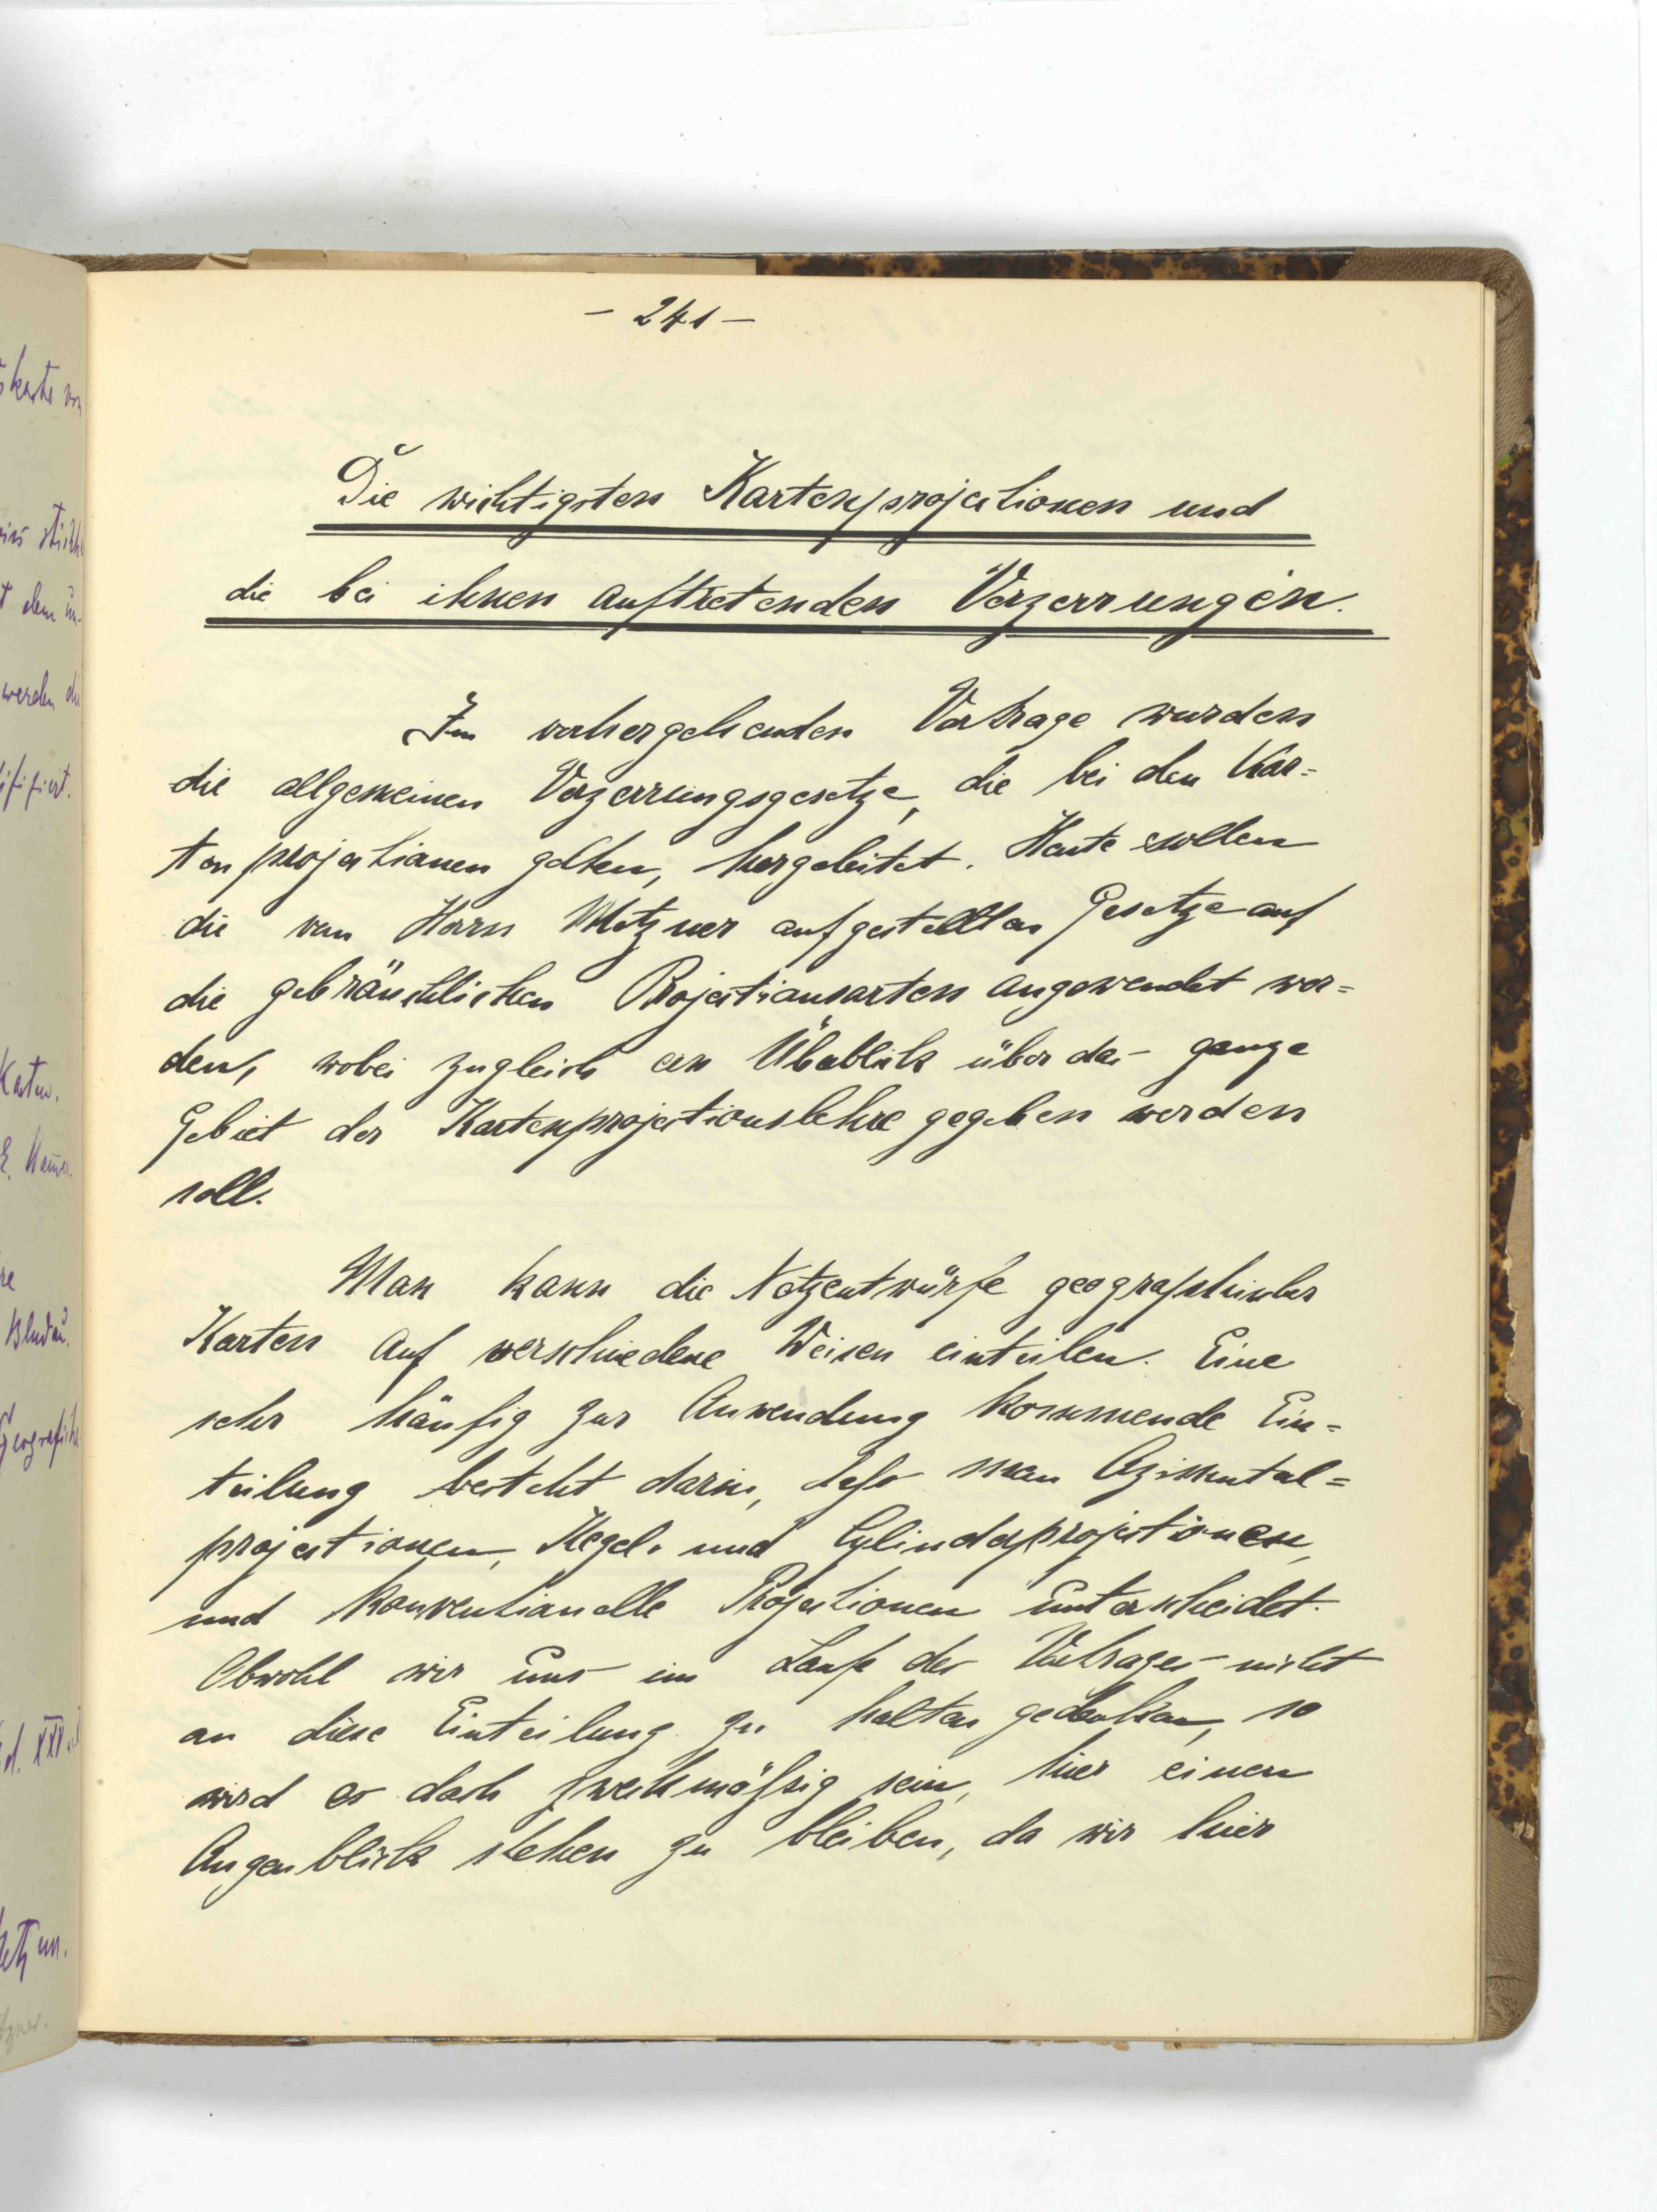 - 241 -
Die wichtigsten Kartenprojectionen und
die bei ihnen auftretenden Verzerrungen.
Im vorhergehenden Vortrage wurden
die allgemeinen Verzerrungsgesetze, die bei den Kar=
tenprojectionen gelten, hergeleitet. Heute sollen
die von Herrn Metzner aufgestellten Gesetze auf
die gebräuchlichen Projectionsarten angewendet wer=
den, wobei zugleich ein Überblick über das ganze
Gebiet der Kartenprojectionslehre gegeben werden
soll.
Man kann die Netzentwürfe geographischer
Karten auf verschiedene Weisen einteilen. Eine
sehr häufig zur Anwendung kommende Ein=
teilung besteht darin, dass man Azimutal=
projectionen, Kegel- und Cylinderprojectionen,
und konventionelle Projectionen unterscheidet.
Obwohl wir uns im Laufe des Vortrages nicht
an diese Einteilung zu halten gedenken, so
wird es doch zweckmässig sein, hier einen
Augenblick stehen zu bleiben, da wir hier
werden
Karten.
Bludau.